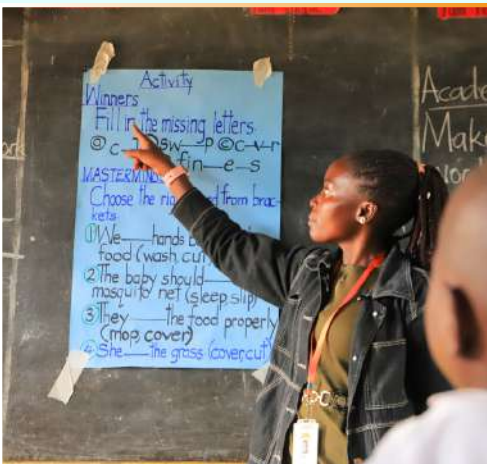 Activity
Winners
Fill in the missing letters
@ c sw—p © c-v-r
fin—e—s
MASTERMIND
Choose the rig from brac-
kets
① We hands b
food (wash, cut
② The baby should
mosquito net (sleep, slip)
③ They the food properly
(mop, cover)
④ She the grass (cover, cut)
Acade
Mak
wor